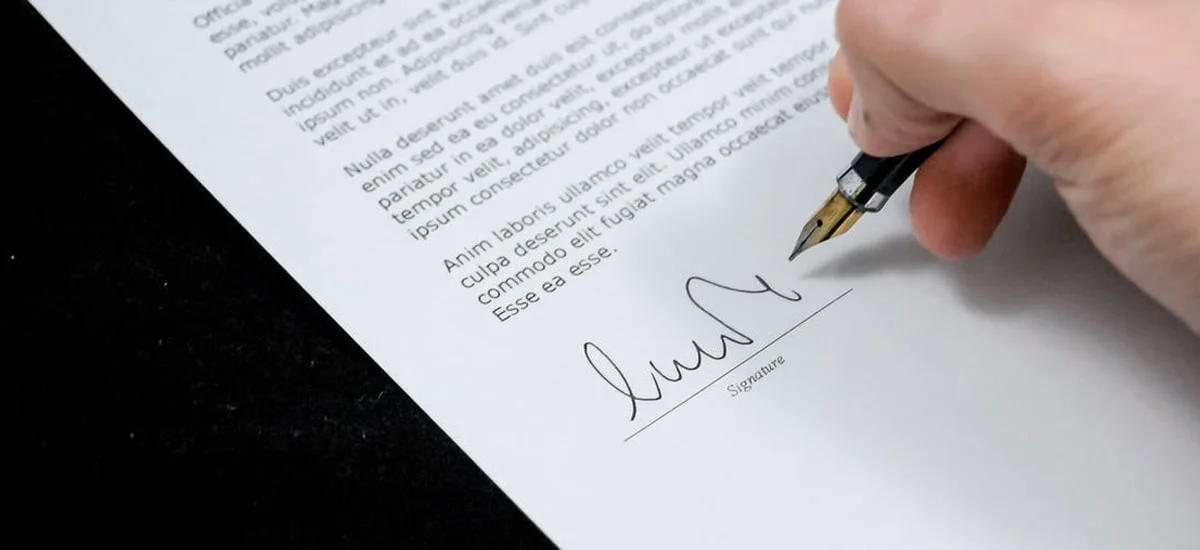 Officia
esse, volu
pariatur. Mag
mollit adipisicing
Duis excepteur sint
incididunt et ad ea occae
ipsum non. Adipisicing veni
velit ut in, velit duis id. Sint
Nulla deserunt amet duis est consequ
enim sed ea eu consectetur ut, do dolore
pariatur in ea dolor velit, excepteur mollit
tempor velit, adipisicing, excepteur ut excepteu
ipsum consectetur dolor non occaecat sunt qui
Anim laboris ullamco velit tempor velit tempor
culpa deserunt sint elit. Ullamco minim
commodo elit fugiat magna occaecat
Esse ea esse.
Signature